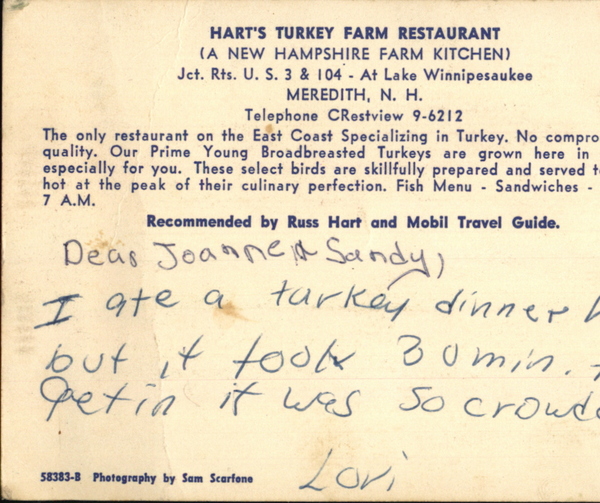 HART'S TURKEY FARM RESTAURANT
(A NEW HAMPSHIRE FARM KITCHEN)
Jct. Rts. U. S. 3 & 104 - At Lake Winnipesaukee
MEREDITH, N. H.
Telephone CRestview 9-6212
The only restaurant on the East Coast Specializing in Turkey. No compro
quality. Our Prime Young Broadbreasted Turkeys are grown here in
especially for you. These select birds are skillfully prepared and served
hot at the peak of their culinary perfection. Fish Menu - Sandwiches -
7 A.M.
Recommended by Russ Hart and Mobil Travel Guide.
Dear Joanne & Sandy,
I ate a turkey dinner
but it took 30 min.
get in it was so crowd
Lori
58383-B Photography by Sam Scarfone